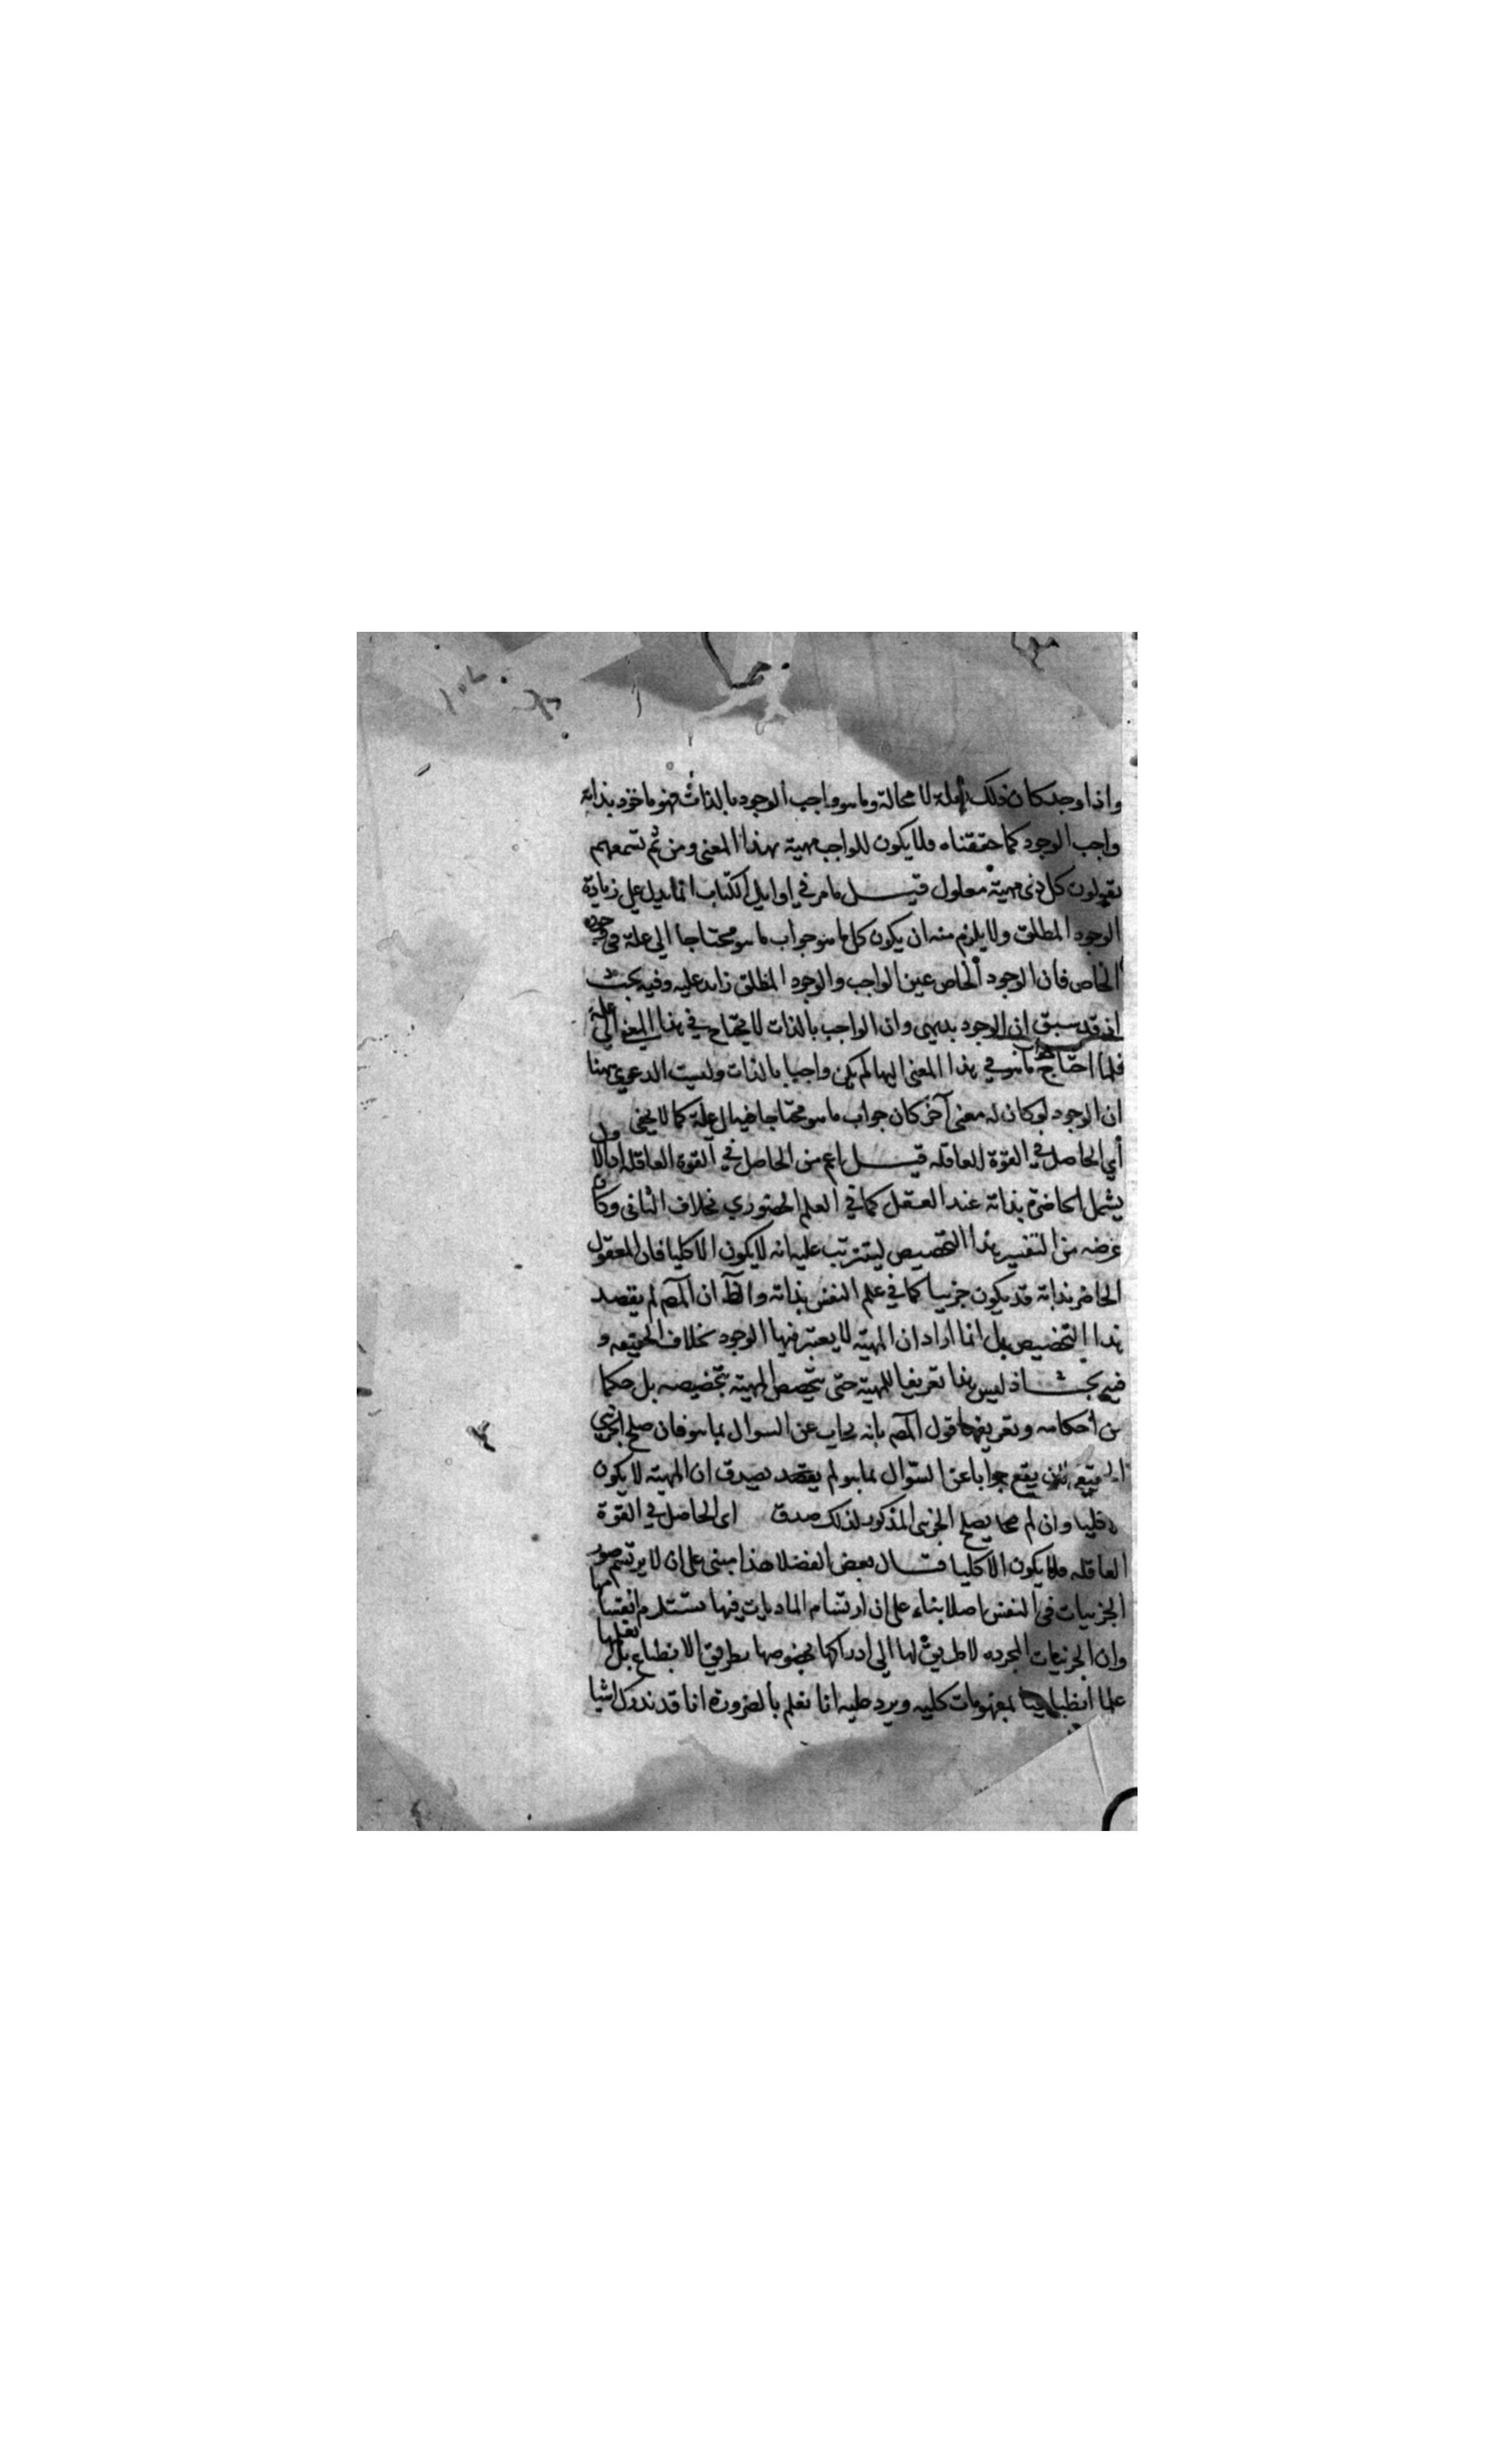 واذا وجد كان ذلك لعلة لا محالة وما هو واجب الوجود بالذات فهو ماخوذ بذاته
واجب الوجود كما حققناه فلا يكون للواجب مهية بهذا المعنى ومن ثم تسمعهم
يقولون كل ذى مهية معلول قيل ما مر في اوايل الكتاب انما يدل على زيادة
الوجود المطلق ولا يلزم منه ان يكون كل ما هو جواب ما هو محتاجا الى علة فى وجوده
الخاص فان الوجود الخاص عين الواجب والوجود المطلق زايد عليه وفيه بحث
اذ قد سبق ان الوجود بديهى وان الواجب بالذات لا يحتاج في هذا المعنى الى علة
فلما احتاج ما هو في هذا المعنى اليها لم يكن واجبا بالذات وليست الدعوى ههنا
ان الوجود لو كان له معنى آخر كان جواب ما هو محتاجا الى علة كما لا يخفى
أي الحاصل في القوة العاقله قيل اعم من الحاصل في القوة العاقله اذ الاول
يشمل الحاضر بذاته عند العقل كما في العلم الحضوري بخلاف الثانى وكان
غرضه من التفسير بهذا التخصيص ليترتب عليه انه لا يكون الا كليا فان المعقول
الحاضر بذاته قد يكون جزييا كما في علم النفس بذاته والظ ان المص لم يقصد
بهذا التخصيص بل انما اراد ان المهية لا يعتبر فيها الوجود بخلاف الحقيقه و
فيه بحث اذ ليس هذا تعريفا للمهية حتى يتخصص المهية بتخصيصه بل حكما
من أحكامه وتعريفها قول المص بانه يجاب عن السوال بما هو فان صلح الجزيي
يقع جوابا عن السوال بما هو لم يصدق ان المهية لا يكون
كليا وان لم يصلح الجزيى المذكور لذلك صدق اى الحاصل في القوة
العاقله فلا يكون الا كليا قال بعض الفضلا هذا مبنى على ان لا يرتسم صور
الجزييات فى النفس اصلا بناء على ان ارتسام الماديات فيها يستلزم انقسامها
وان الجزييات المجرده لا طريق لها الى ادراكها بخصوصها بطريق الانطباع بل تعلمها
علما انطباعيا بمفهومات كليه ويرد عليه انا نعلم بالضرورة انا قد ندرك اشيا